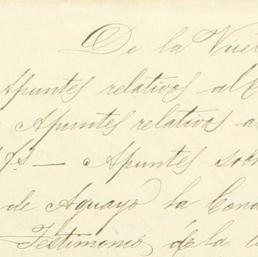 De la
Apuntes relativos al
Apuntes relativos a
— Apuntes sob
de Aguayo la Cond
Testimonio de la